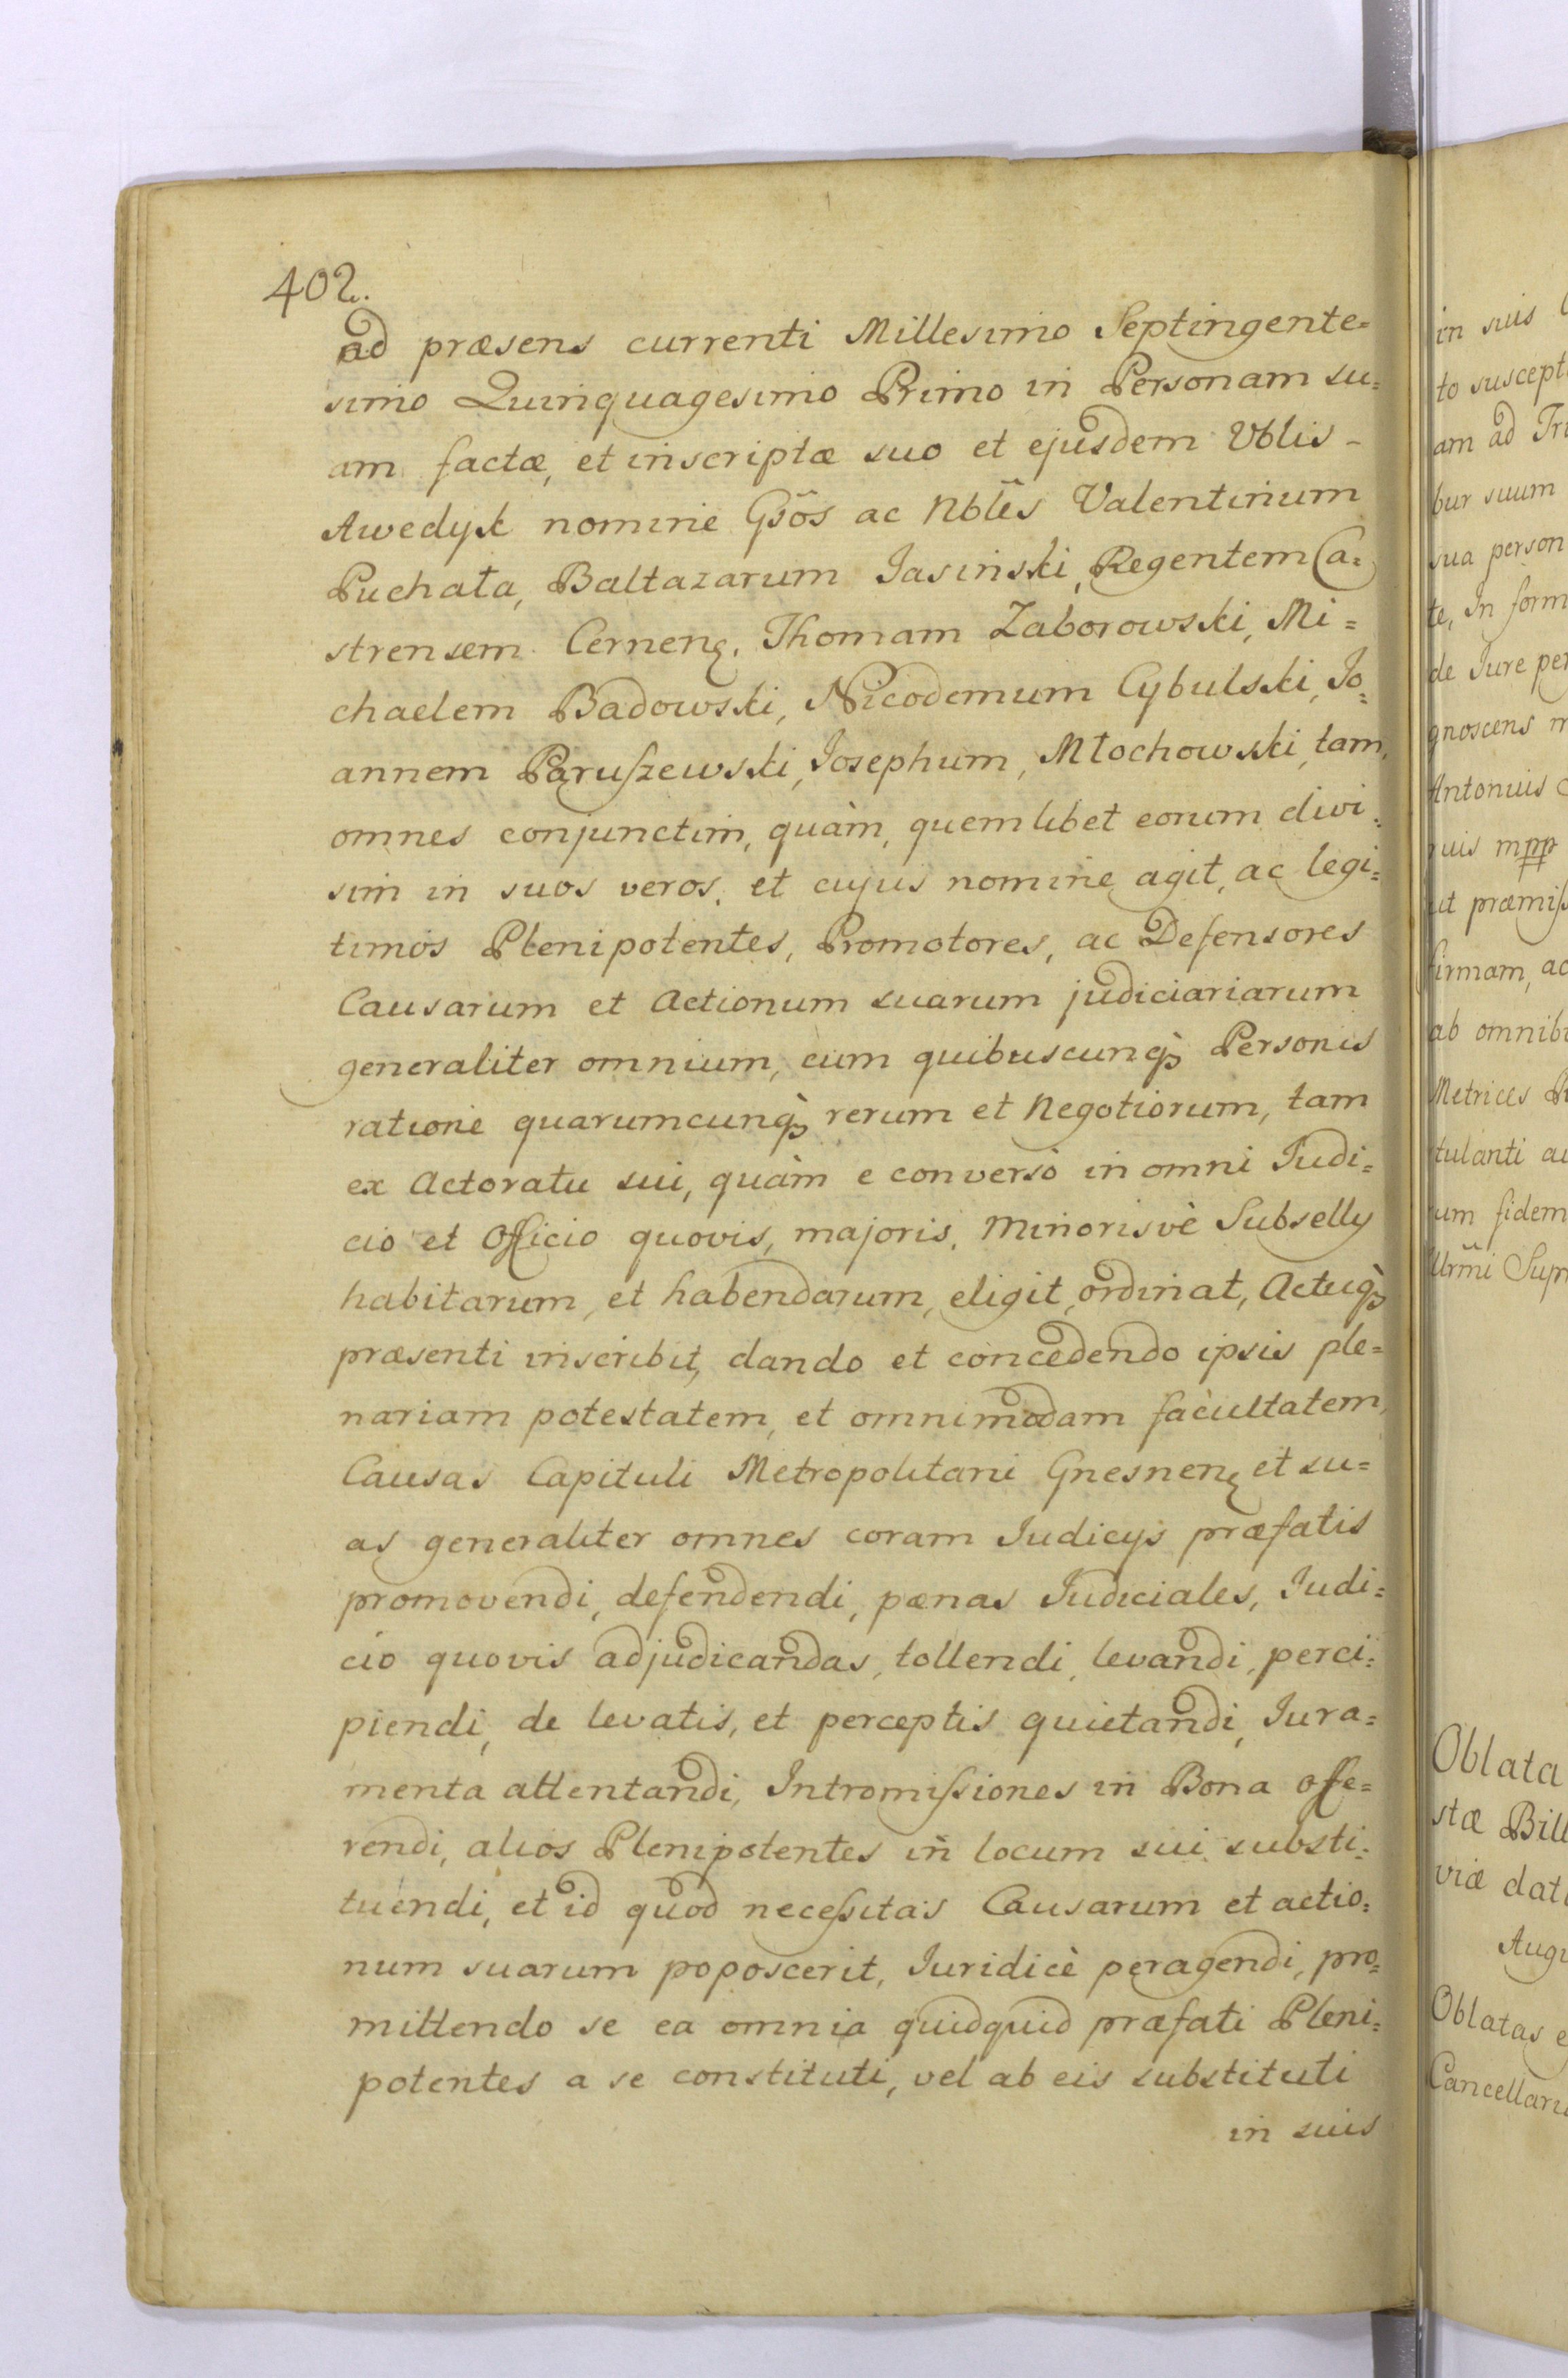 402.
ad præsens currenti Millesimo Septingente=
simo Quinquagesimo Primo in Personam su=
am factæ, et inscriptæ suo et ejusdem Vblis -
Awedyk nomine Gsõs ac Nblẽs Valentinum
Puchała, Baltazarum Jasinski, Regentem Ca=
strensem Cernenȩ. Thomam Zaborowski, Mi=
chaelem Badowski, Nicodemum Cybulski, Jo=
annem Paruſzewski, Josephum, Młochowski, tam,
omnes conjunctim, quàm, quemlibet eorum divi=
sim in suos veros, et cujus nomine agit, ac legi=
timos Plenipotentes, Promotores, ac Defensores
Causarum et Actionum suarum judiciariarum
generaliter omnium, cum quibuscunqꝫ Personis
ratione quarumcunqꝫ rerum et Negotiorum, tam
ex Actoratu sui, quàm e converso in omni Judi=
cio et Officio quovis, majoris, Minorisvè Subselly
habitarum, et habendarum, eligit, ordinat, Actuqꝫ
præsenti inscribit, dando et concedendo ipsis ple=
nariam potestatem, et omnimodam facultatem,
Causas Capituli Metropolitani Gnesnenȩ et su=
as generaliter omnes coram Judicys præfatis
promovendi, defendendi, pænas Judiciales, Judi=
cio quovis adjudicandas, tollendi, levandi, perci=
piendi, de levatis, et perceptis quietandi, Jura=
menta attentandi, Intromiſsiones in Bona offe=
rendi, alios Plenipotentes in locum sui substi=
tuendi, et id quod neceſsitas Causarum et actio=
num suarum poposcerit, Juridicè peragendi, pro=
mittendo se ea omnia quidquid præfati Pleni=
potentes a se constituti, vel ab eis substituti
in suis
in suis
to suscept
am ad Tri
bur suum
sua person
te, In form
de Jure per
gnoscens m
Antonius
mpp
ut præmiſs
firmam, ac
ab omnibu
Metrices
tulanti
um fidem
Urm̃i Sup
Oblata
stæ Bill
viæ dat
Augu
Oblatas e
Cancellari